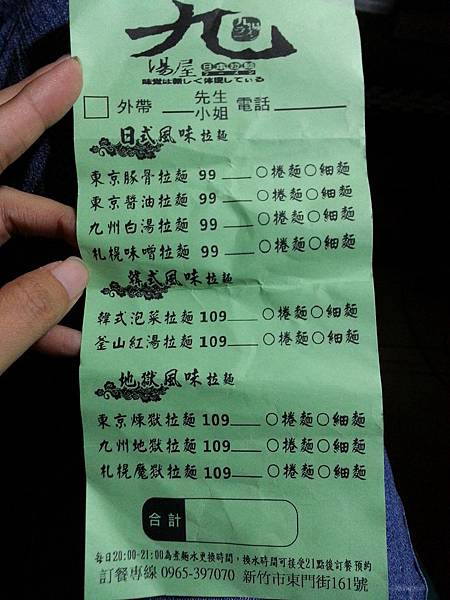 九
湯屋 日本拉麵
味覚は新しく体現している
外帶 先生 小姐 電話
日式風味拉麵
東京豚骨拉麵 99 ○捲麵○細麵
東京醬油拉麵 99 ○捲麵○細麵
九州白湯拉麵 99 ○捲麵○細麵
札幌味噌拉麵 99 ○捲麵○細麵
韓式風味拉麵
韓式泡菜拉麵 109 ○捲麵○細麵
釜山紅湯拉麵 109 ○捲麵○細麵
地獄風味拉麵
東京煉獄拉麵 109 ○捲麵○細麵
九州地獄拉麵 109 ○捲麵○細麵
札幌魔獄拉麵 109 ○捲麵○細麵
合計
每日20:00-21:00為煮麵水更換時間，換水時間可接受21點後訂餐預約
訂餐專線 0965-397070 新竹市東門街161號